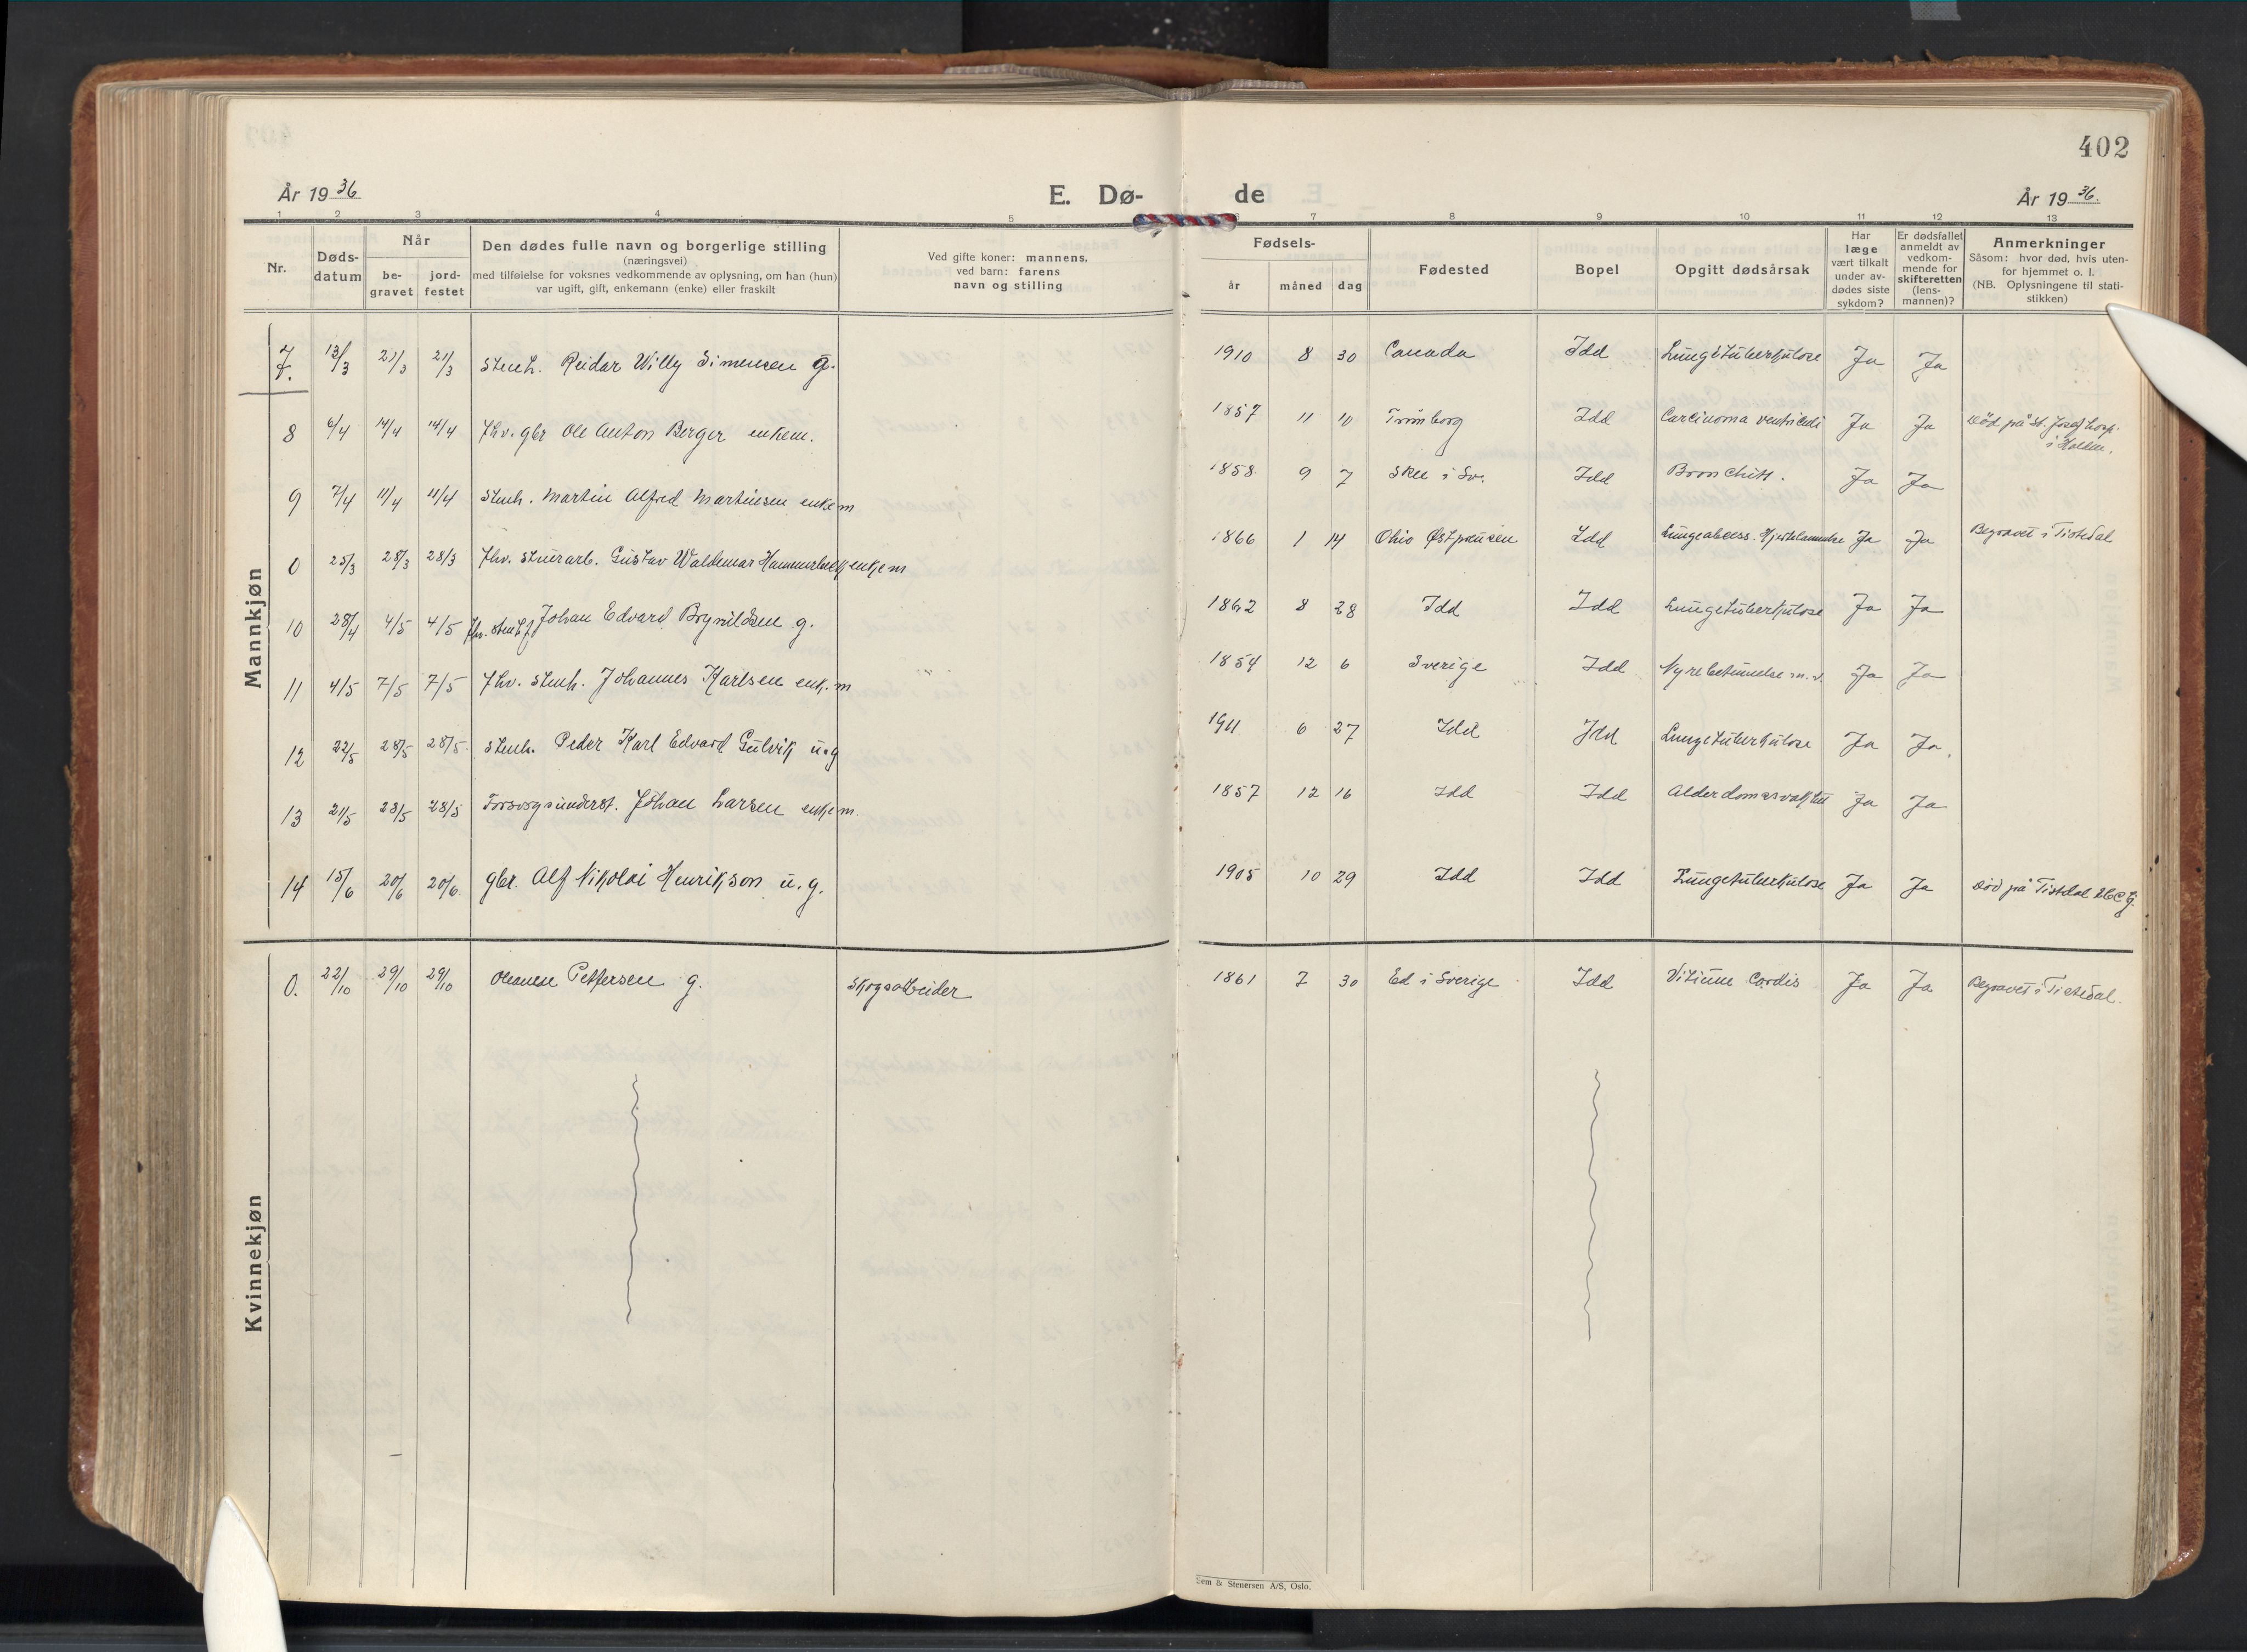 402
År 1936
E. Dø-
de
År 1936.
1 2 3 4 5 6 7 8 9 10 11 12 13
Nr.
Døds-
datum
Når
be-
gravet
jord-
festet
Den dødes fulle navn og borgerlige stilling
(næringsvei)
med tilføielse for voksnes vedkommende av oplysning, om han (hun)
var ugift, gift, enkemann (enke) eller fraskilt
Ved gifte koner: mannens,
ved barn: farens
navn og stilling
Fødsels-
år
måned
dag
Fødested
Bopel
Opgitt dødsårsak
Har
læge
vært tilkalt
under av-
dødes siste
sykdom?
Er dødsfallet
anmeldt av
vedkom-
mende for
skifteretten
(lens-
mannen)?
Anmerkninger
Såsom: hvor død, hvis uten-
for hjemmet o. l.
(NB. Oplysningene til stati-
stikken)
Mannkjøn
7. 13/3 21/3 21/3 Stenh. Reidar Willy Simensen g. 1910 8 30 Canada Idd Lungetuberkulose Ja Ja
8 6/4 14/4 14/4 Fhv. gbr Ole Anton Berger enkem. 1857 11 10 Idd Carcinoma ventriculi Ja Ja Død på St. Josef hosp.
i Halden.
9 7/4 11/4 11/4 Stenh. Martin Alfred Martinsen enkem 1858 9 7 Skee i Sv. Idd Bronchitt. Ja Ja
0 25/3 28/3 28/3 Fhv. Gustav Waldemar enkem 1866 1 14 Østprøusen Idd Lungeabcess. Ja Ja Begravet i Tistedal
10 28/4 4/5 4/5 Fhv. stenh. Johan Edvard Brynildsen g. 1862 8 28 Idd Idd Lungetuberkulose Ja Ja
11 4/5 7/5 7/5 Fhv. stenh. Johannes Karlsen enk.m 1854 12 6 Sverige Idd Nyrebetennelse m.v. Ja Ja
12 22/5 28/5 28/5 Stenh. Peder Karl Edvard Gulvik u.g 1911 6 27 Idd Idd Lungetuberkulose Ja Ja.
13 21/5 23/5 28/5 Forsorgsunderst. Johan Larsen enkem. 1857 12 16 Idd Idd Alderdomssvakhet Ja Ja
14 15/6 20/6 20/6. gbr. Alf Nikolai Henrikson u.g. 1905 10 29 Idd Idd Lungetuberkulose Ja Ja Død på Tistedal
Kvinnekjøn
0. 22/10 29/10 29/10 Oleanne Pettersen g. Skogsarbeider 1861 7 30 Ed i Sverige Idd Vitium Cordis Ja Ja Begravet i Tistedal.
Sem & Stenersen A/S, Oslo.